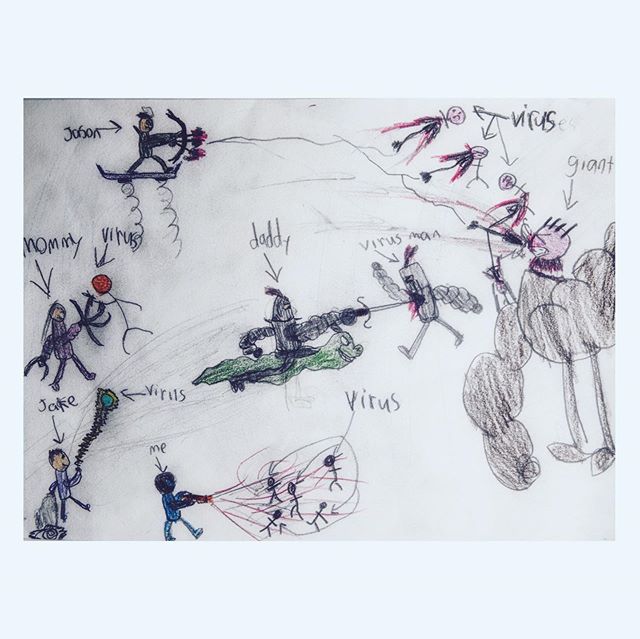 Jason
virus
giant
mommy
virus
daddy
virus man
virus
Jake
me
virus